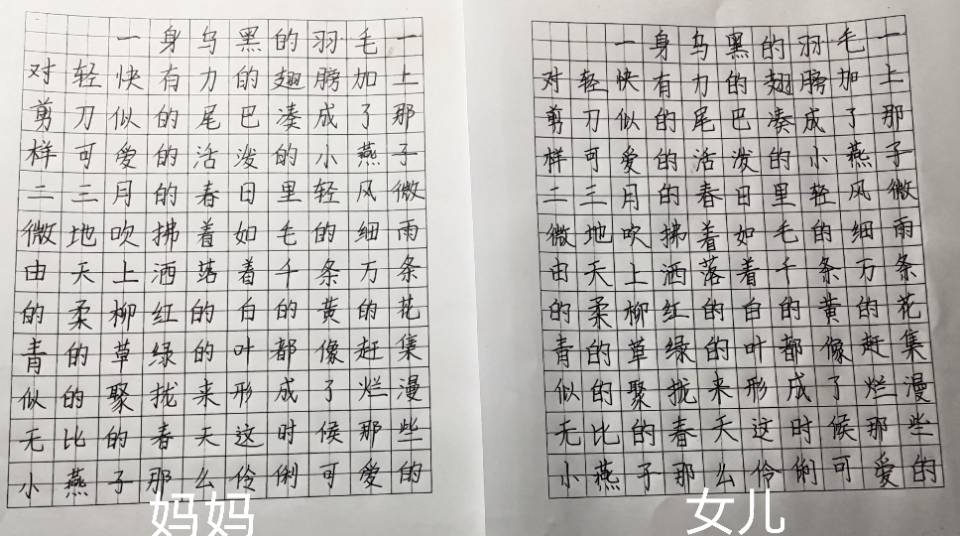 一身乌黑的羽毛一
对轻快有力的翅膀加上
剪刀似的尾巴凑成了那
样可爱的活泼的小燕子
二三月的春日里轻风微
微地吹拂着如毛的细雨
由天上洒落着千条万条
的柔柳红的白的黄的花
青的草绿的叶都像赶集
似的聚拢来形成了烂漫
无比的春天这时候那些
小燕子那么伶俐可爱的
妈妈
一身乌黑的羽毛一
对轻快有力的翅膀加上
剪刀似的尾巴凑成了那
样可爱的活泼的小燕子
二三月的春日里轻风微
微地吹拂着如毛的细雨
由天上洒落着千条万条
的柔柳红的白的黄的花
青的草绿的叶都像赶集
似的聚拢来形成了烂漫
无比的春天这时候那些
小燕子那么伶俐可爱的
女儿